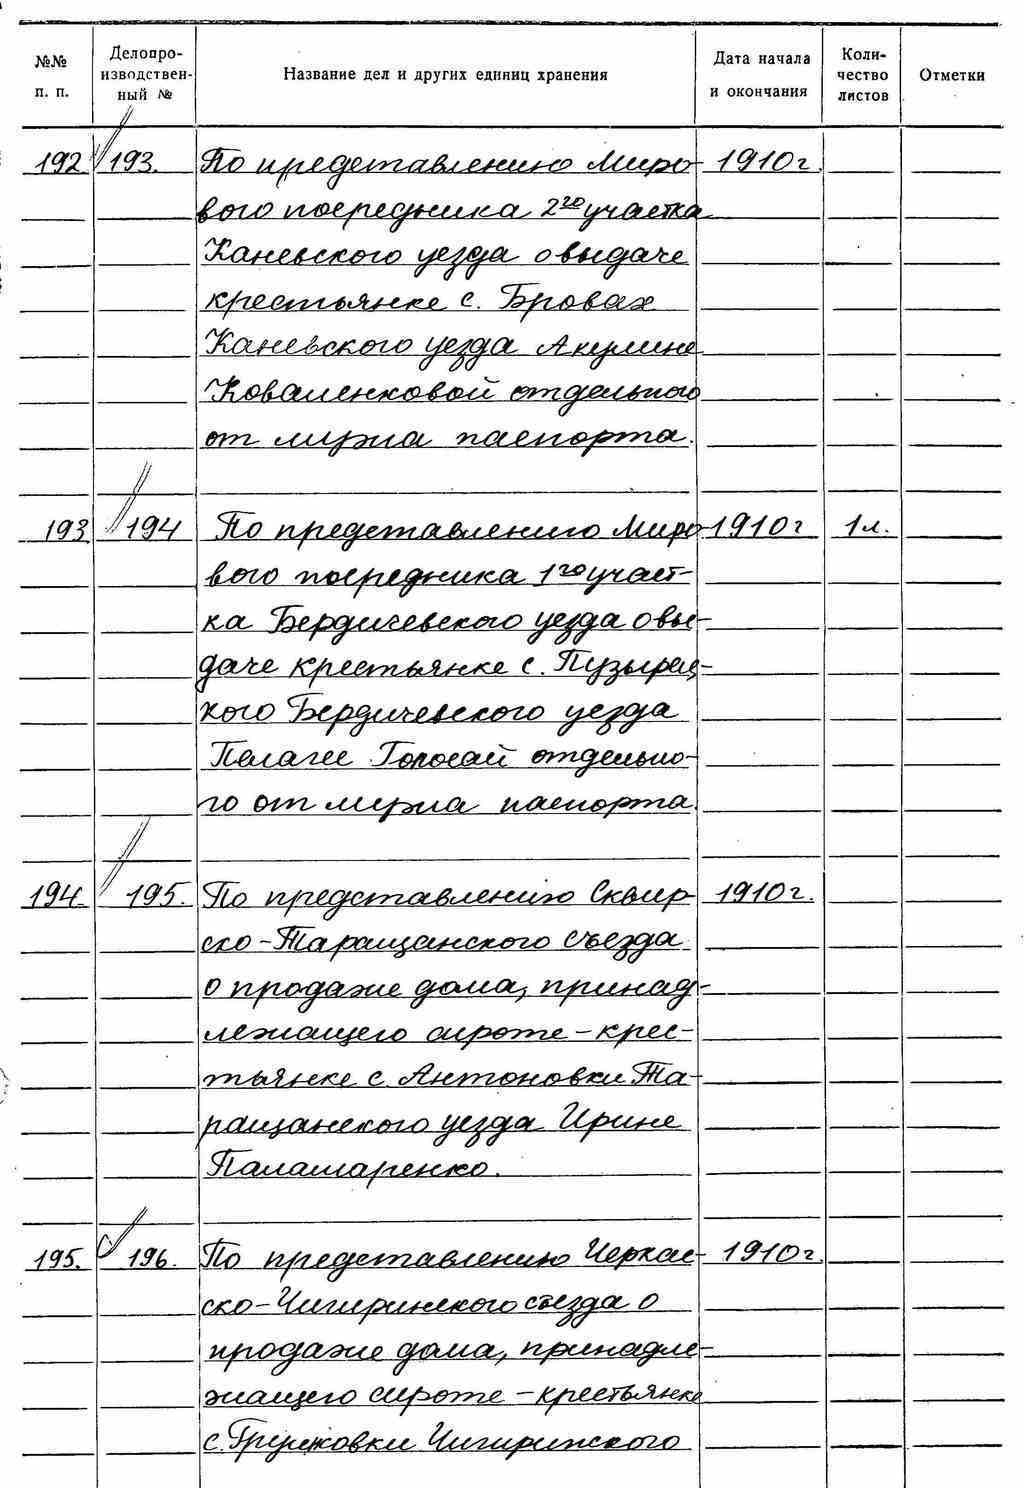 №№ п. п. Делопро- изводствен- ный № Название дел и других единиц хранения Дата начала и окончания Коли- чество листов Отметки
192 193. По представлению Миро- 1910 г.
вого посредника 2го участка
Каневского уезда о выдаче
крестьянке с. Бровах
Каневского уезда Акулине
Коваленковой отдельного
от мужа паспорта.
193 194 По представлению Миро- 1910 г 1 л.
вого посредника 1го участ-
ка Бердичевского уезда о вы-
даче крестьянке с. Пузырец-
кого Бердичевского уезда
Пелагее Голосай отдельно-
го от мужа паспорта.
194 195. По представлению Сквир- 1910 г.
ско-Таращанского съезда
о продаже дома, принад-
лежащего сироте - крес-
тьянке с Антоновки Та-
ращанского уезда Ирине
Паламаренко.
195. 196. По представлению Черкас- 1910 г.
ско-Чигиринского съезда о
продаже дома, принадле-
жащего сироте - крестьянке
с. Грушковки Чигиринского